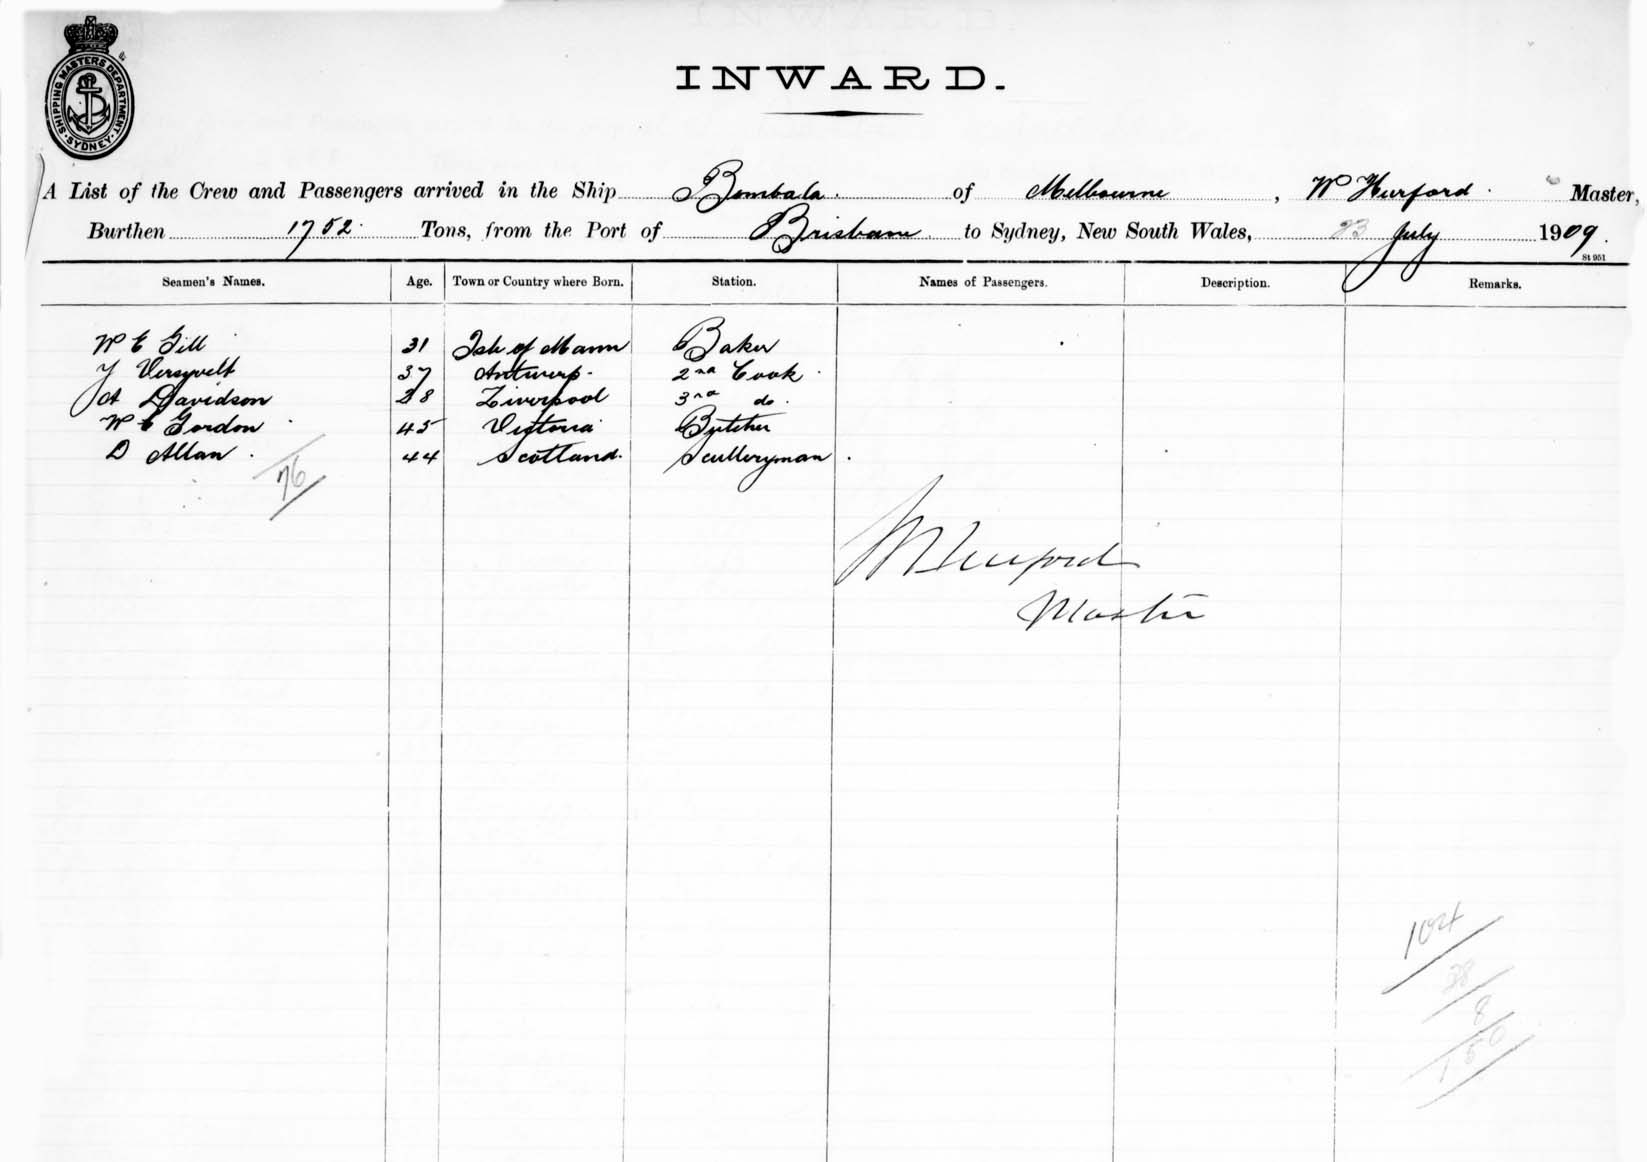 SHIPPING MASTERS DEPARTMENT
SYDNEY
INWARD.
A List of the Crew and Passengers arrived in the Ship Bombala. of Melbourne, W Hurford. Master,
Burthen 1752. Tons, from the Port of Brisbane to Sydney, New South Wales, 23 July 1909.
St 951
Seamen's Names. Age. Town or Country where Born. Station. Names of Passengers. Description. Remarks.
W E Gill 31 Isle of Mann Baker
37 Antwerp. 2nd Cook
A Davidson 28 Liverpool 3rd do.
W C Gordon 45 Victoria Butcher
D Allan. 44 Scotland. Sculleryman.
76
W Hurford
Master
104
38
8
150